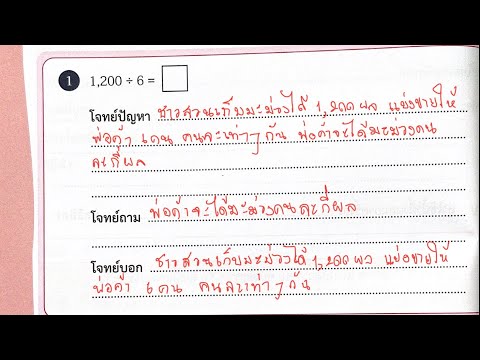 1 1,200 ÷ 6 =
โจทย์ปัญหา ชาวสวนเก็บมะม่วงได้ 1,200 ผล แบ่งขายให้
พ่อค้า 6 คน คนละเท่าๆ กัน พ่อค้าจะได้มะม่วงคน
ละกี่ผล
โจทย์ถาม พ่อค้าจะได้มะม่วงคนละกี่ผล
โจทย์บอก ชาวสวนเก็บมะม่วงได้ 1,200 ผล แบ่งขายให้
พ่อค้า 6 คน คนละเท่าๆ กัน